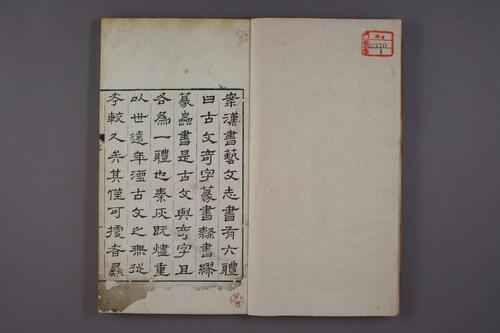 案漢書藝文志書有六體
曰古文奇字篆書隸書繆
篆蟲書是古文與奇字且
各為一體也秦灰既燼重
以世遠年湮古文之無從
考較久矣其僅可據者彝